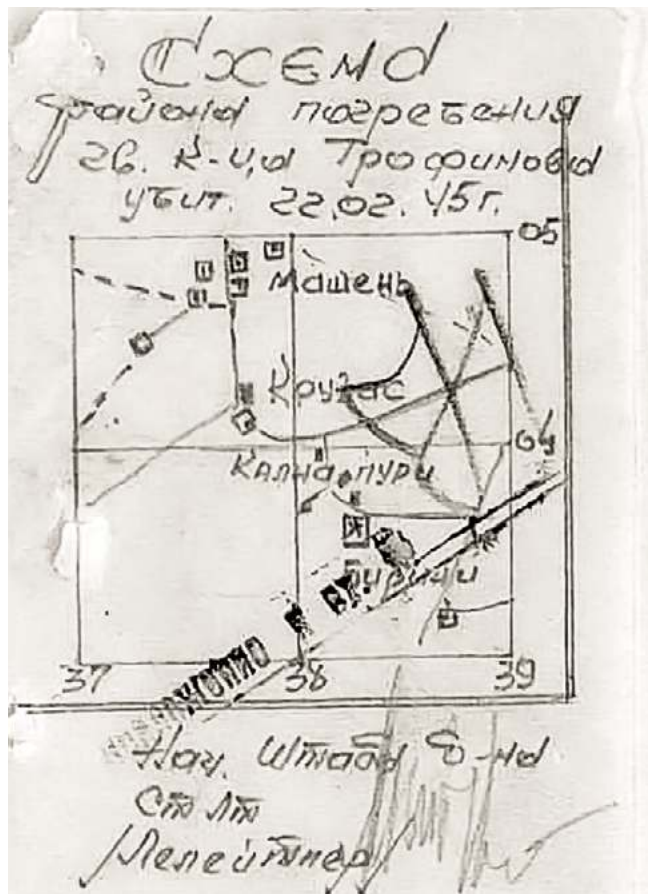 Схема
района погребения
гв. к-ца Трофимова
убит. 22.02.45г.
05
Машень
Кружас
04
Кална-пури
Пурини
37 38 39
Нач. Штаба б-на
Ст Лт